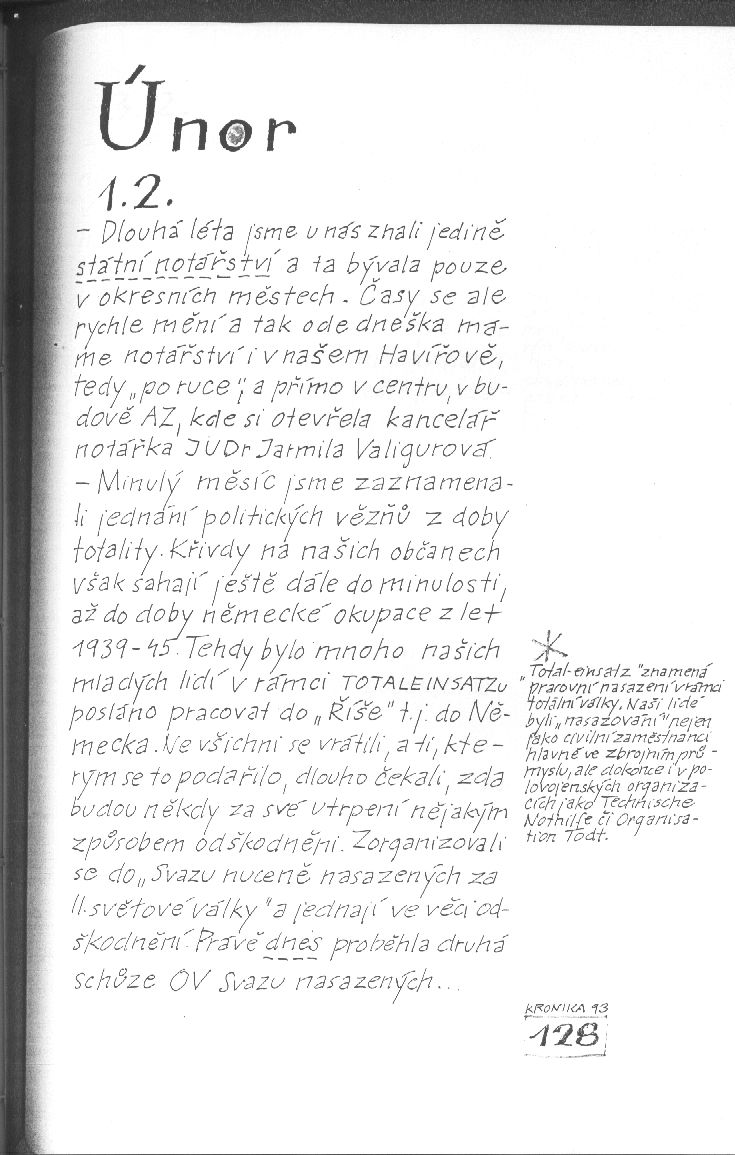 Únor
1.2.
– Dlouhá léta jsme u nás znali jedině
státní notářství a ta bývala pouze
v okresních městech. Časy se ale
rychle mění a tak ode dneška má-
me notářství i v našem Havířově,
tedy „po ruce“, a přímo v centru, v bu-
dově AZ, kde si otevřela kancelář
notářka JUDr Jarmila Valigurová.
– Minulý měsíc jsme zaznamena-
li jednání politických vězňů z doby
totality. Křivdy na našich občanech
však sahají ještě dále do minulosti,
až do doby německé okupace z let
1939-45. Tehdy bylo mnoho našich
mladých lidí v rámci TOTALEINSATZu
posláno pracovat do „Říše“ t.j. do Ně-
mecka. Ne všichni se vrátili, a ti, kte-
rým se to podařilo, dlouho čekali, zda
budou někdy za své utrpení nějakým
způsobem odškodněni. Zorganizovali
se do „Svazu nuceně nasazených za
II. světové války“ a jednají ve věci od-
škodnění. Právě dnes proběhla druhá
schůze OV Svazu nasazených...
*
„Total-einsatz“ znamená
pracovní nasazení v rámci
totální války. Naši lidé
byli „nasazováni“ nejen
jako civilní zaměstnanci
hlavně ve zbrojním prů-
myslu, ale dokonce i v po-
lovojenských organiza-
cích jako Technische
Nothilfe či Organisa-
tion Todt.
KRONIKA 93
128